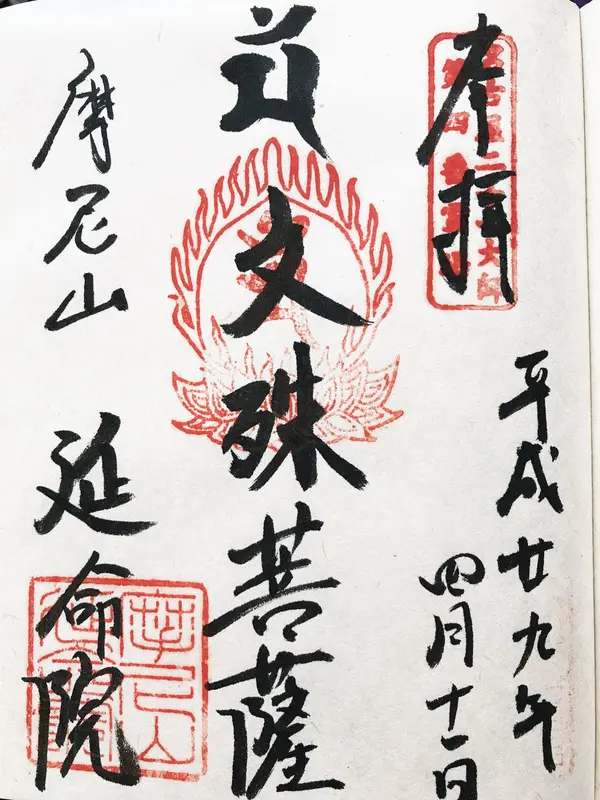 奉拝
平成廿九年
四月十一日
文殊菩薩
摩尼山 延命院
摩尼山